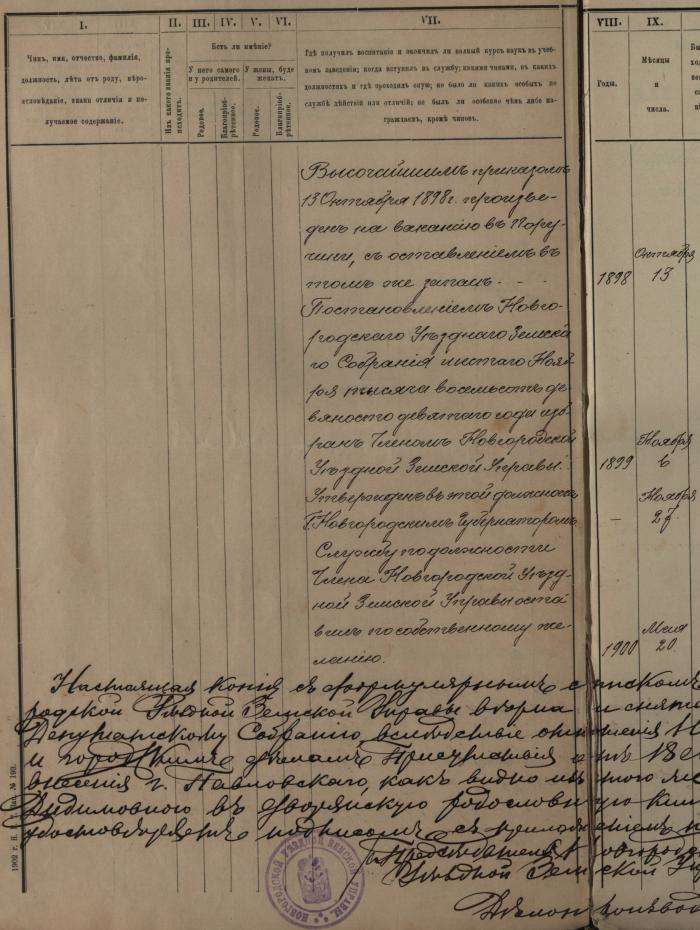 I.
II.
III.
IV.
V.
VI.
VII.
VIII.
IX.
X
Чинъ, имя, отчество, фамилія,
должность, лѣта отъ роду, вѣро-
исповѣданіе, знаки отличія и по-
лучаемое содержаніе.
Изъ какого званія про-
исходитъ.
Есть ли имѣніе?
У него самого
и у родителей.
У жены, буде
женатъ.
Родовое.
Благопріоб-
рѣтенное.
Родовое.
Благопріоб-
рѣтенное.
Гдѣ получилъ воспитаніе и окончилъ ли полный курсъ наукъ въ учеб-
номъ заведеніи; когда вступилъ въ службу; какими чинами, въ какихъ
должностяхъ и гдѣ проходилъ оную; не было ли какихъ особыхъ по
службѣ дѣйствій или отличій; не былъ ли особенно чѣмъ либо на-
граждаемъ, кромѣ чиновъ.
Годы.
Мѣсяцы
и
числа.
Высочайшимъ приказомъ
13 Октября 1898 г. произве-
денъ на ваканію въ Пору-
чики, съ оставленіемъ въ
томъ же запасѣ.
1898
Октября
13
Постановленіемъ Новго-
родскаго Уѣзднаго Земска-
го Собранія шестаго Нояб-
ря тысяча восемьсотъ де-
вяносто девятаго года изб-
ранъ Членомъ Новгородской
Уѣздной Земской Управы.
1899
Ноября
6
Утвержденъ въ этой должности
Г. Новгородскимъ Губернаторомъ
—
Ноября
Службу по должности
Члена Новгородской Уѣзд-
ной Земской Управы оста-
вилъ по собственному же-
ланію.
1900
Мая
20
Настоящая копія съ формулярнымъ спискомъ
родской Уѣздной Земской Управы вѣрна и снята
Депутатскому Собранію, вслѣдствіе отношенія
и городскимъ дѣламъ Присутствія отъ 18
внесенія г. Павловскаго, какъ видно изъ этого
въ дворянскую родословную
подписомъ съ приложеніемъ
Предсѣдатель Новгородской
Уѣздной Земской
Дѣлопроизвод
НОВГОРОДСКОЙ УѢЗДНОЙ ЗЕМСКОЙ УПРАВЫ
1902 г.